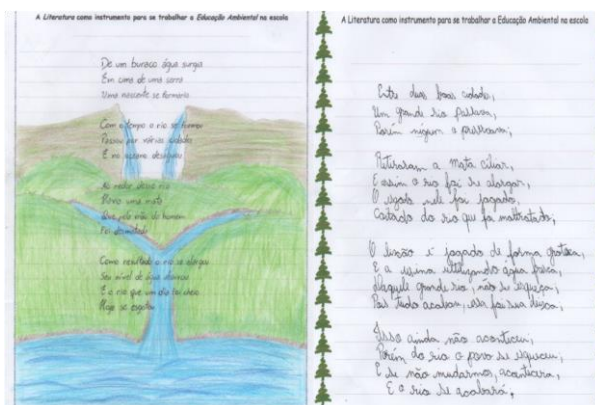 A Literatura como instrumento para se trabalhar a Educação Ambiental na escola
De um buraco água surgia
Em cima de uma serra
Uma nascente se formaria
Com o tempo o rio se formou
Passou por várias cidades
E no oceano desaguou
Ao redor desse rio
Havia uma mata
Que pela mão do homem
Foi desmatada
Como resultado o rio se alargou
Seu nível de água abaixou
E o rio que um dia foi cheio
Hoje se esgotou
A Literatura como instrumento para se trabalhar a Educação Ambiental na escola
Entre duas boas cidades,
Um grande rio passava,
Porém ninguém o preservava;
Retiraram a mata ciliar,
E assim o rio foi se alargar,
O esgoto nele foi jogado,
Coitado do rio que foi maltratado;
O lixão é jogado de forma grotesca,
E a usina utilizando água fresca,
Daquele grande rio, não se esqueça,
Pois tudo acabou, essa foi sua
Isso ainda não aconteceu,
Porém do rio o povo se esqueceu,
E se não mudarmos, acontecera,
E o rio se acabará,